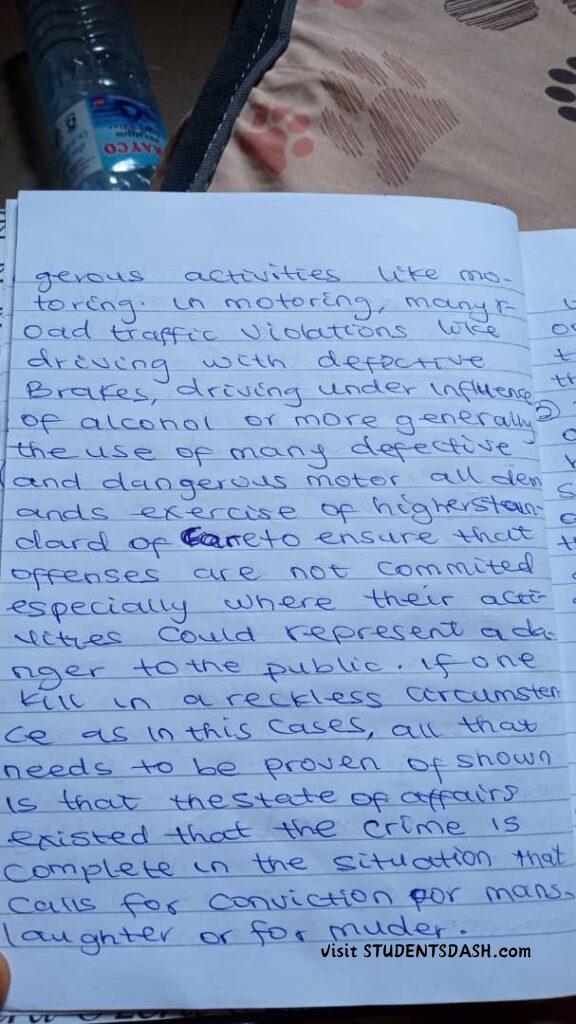 MAYCO
gerous activities like mo-
toring. in motoring, many r-
oad traffic violations like
driving with defective
Brakes, driving under influence
of alcohol or more generally
the use of many defective
and dangerous motor all dem
ands exercise of higherstan-
dard of care to ensure that
offenses are not commited
especially where their acti-
vities could represent a da-
nger to the public. if one
kill in a reckless circumsten
ce as in this cases, all that
needs to be proven of shown
is that the state of affairs
existed that the crime is
complete in the situation that
calls for conviction for mans-
laughter or for muder.
visit STUDENTSDASH.com